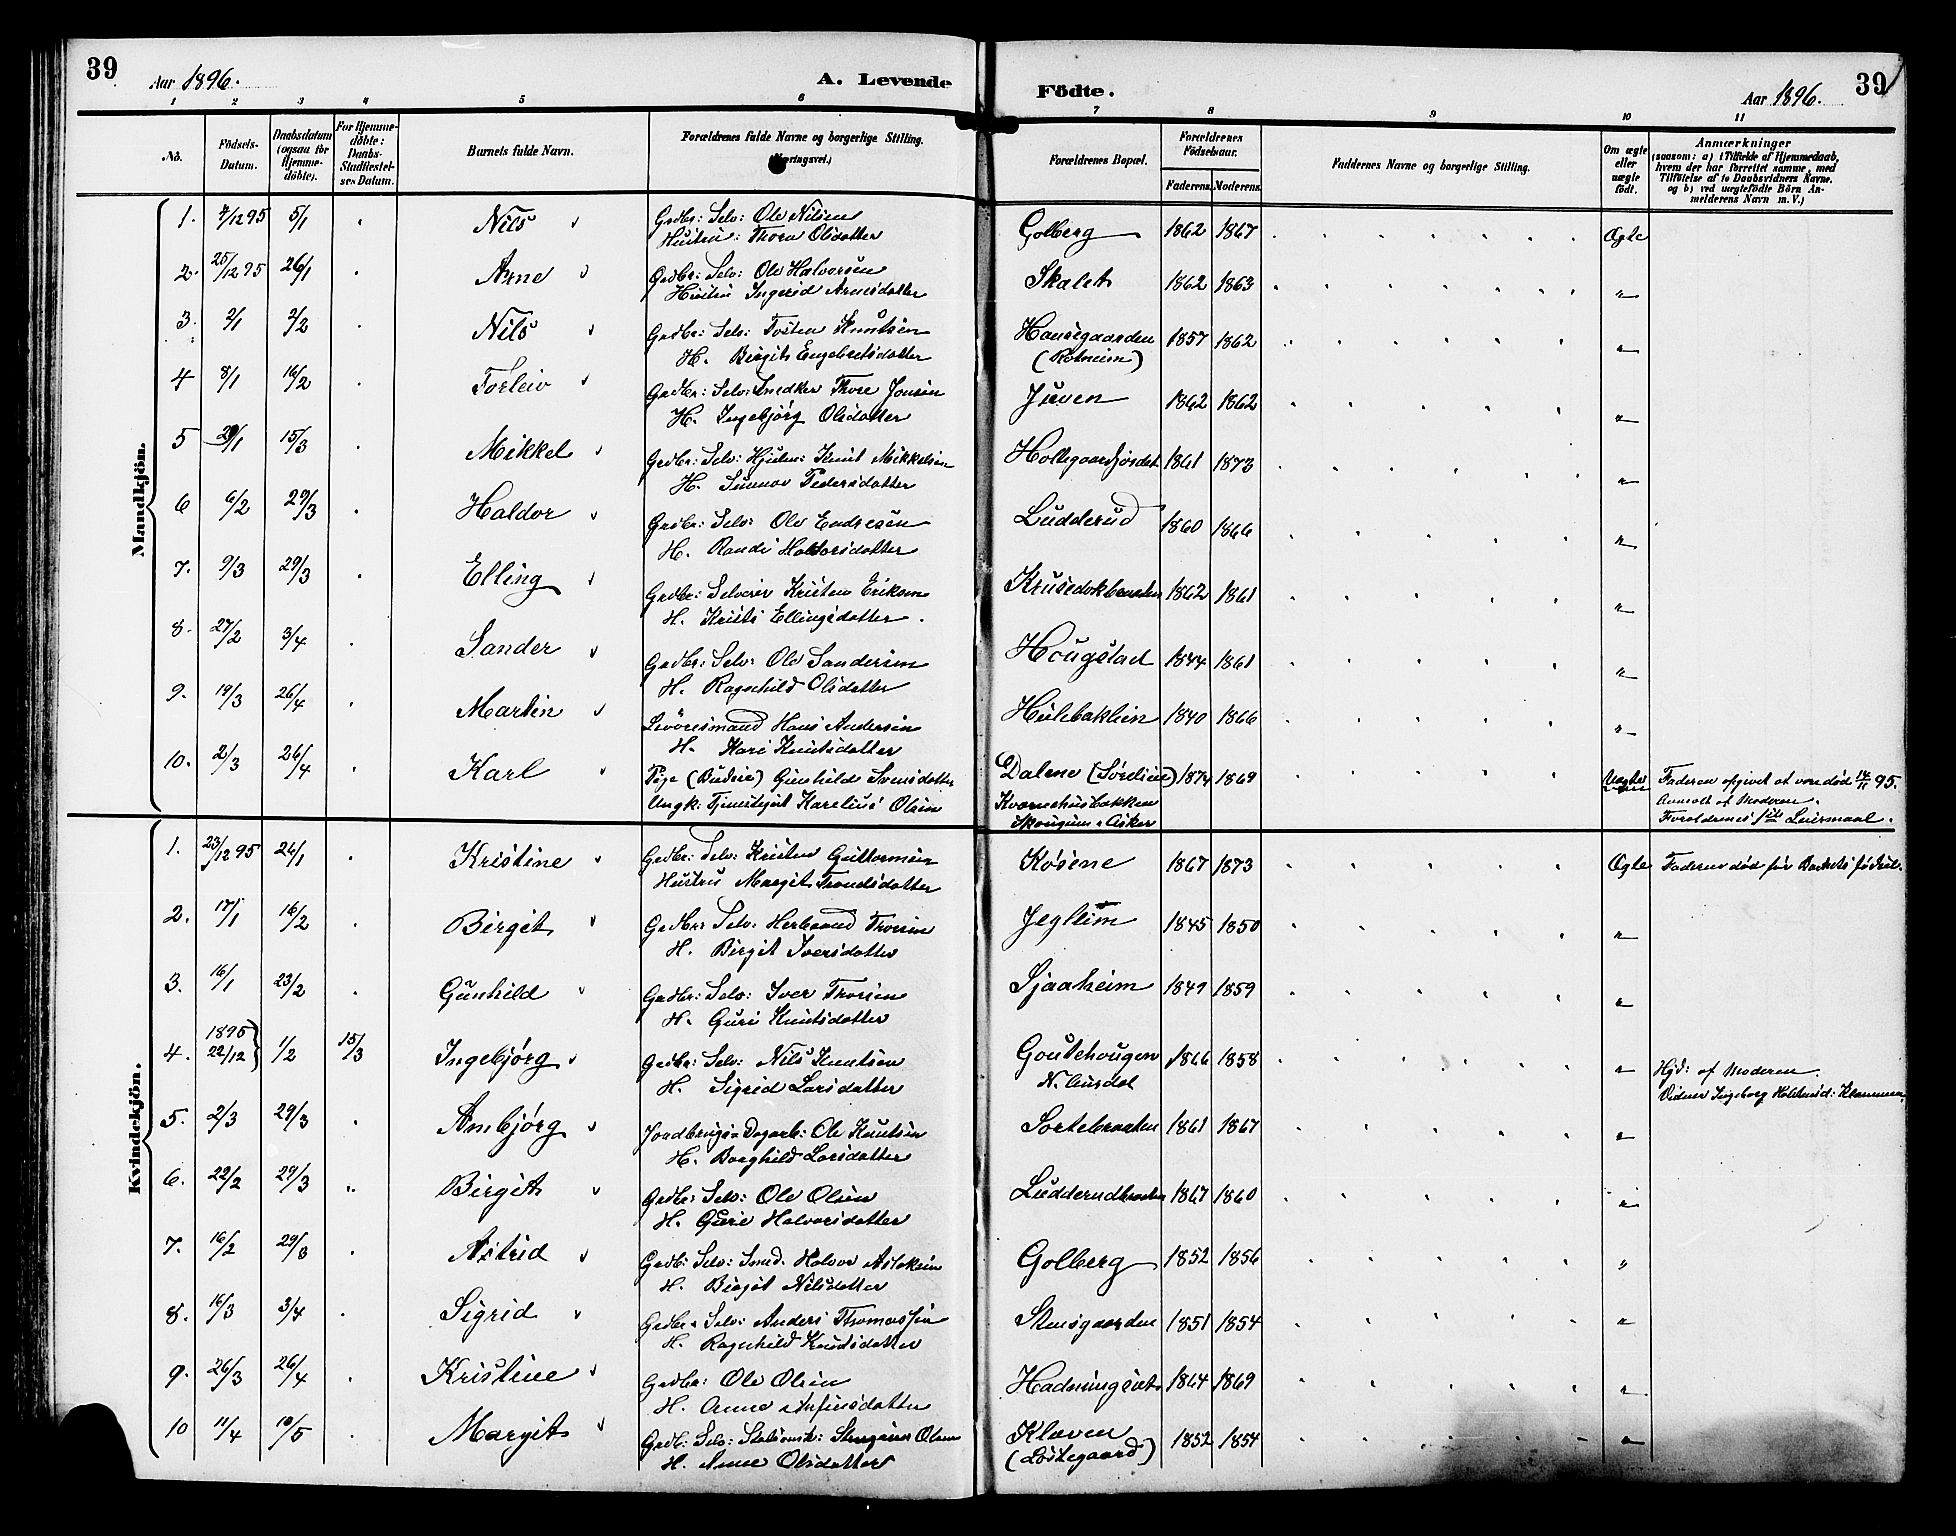 39
Aar 1896.
A. Levende
Födte.
Aar 1896.
39
1 2 3 4 5 6 7 8 9 10 11
No.
Födsels-Datum.
Daabsdatum (ogsaa for Hjemme-döbte).
For Hjemme-döbte: Daabs-Stadfæstel-ses Datum.
Barnets fulde Navn.
Forældrenes fulde Navne og borgerlige Stilling. (Næringsvei.)
Forældrenes Bopæl.
Forældrenes Födselsaar.
Faderens. Moderens.
Faddernes Navne og borgerlige Stilling.
Om ægte eller uægte födt.
Anmærkninger
(saasom: a) i Tilfælde af Hjemmedaab, hvem der har forrettet samme, med Tilföielse af to Daabsvidners Navne, og b) ved uægtefödte Börn An-melderens Navn m. V.)
Mandkjön.
1. 4/12 95 5/1 " Nils " Grdbr: Selv: Ole Nilsen Golberg 1862 1867 Ægte
Hustru: Thora Olsdatter
2. 25/12 95 26/1 " Arne " Grdbr: Selv: Ole Halvorsen Skalet 1862 1863 "
Hustru Ingerid Arnesdatter
3. 2/1 2/2 " Nils " Grdbr: Selv: Tosten Knutsen Hansegaarden 1857 1862 "
H. Birgit Engebretsdatter (Rotneim)
4 8/1 16/2 " Torleiv " Grdbr: Selv: Snedker Thore Jonsen Juven 1862 1862 "
H. Ingebjörg Olsdatter
5 29/1 15/3 " Mikkel " Grdbr: Selv: Hjulm: Knut Mikkelsen 1861 1873 "
H. Sunnov Pedersdatter
6 6/2 29/3 " Haldor " Grdbr: Selv: Ole Endresen Ludderud 1860 1866 "
H. Randi Haldorsdatter
7. 9/3 29/3 " Elling " Grdbr: Selveier Kristen Eriksen Krusedokbraaten 1862 1861 "
H. Kristi Ellingsdatter.
8. 27/2 3/4 " Sander " Grdbr: Selv: Ole Sandersen Hougstad 1844 1861 "
H. Ragnhild Olsdatter
9. 19/3 26/4 " Martin " Livöresmand Hans Andersen Hulebaklien 1840 1866 "
H. Kari Knutsdatter
10. 2/3 26/4 " Karl " Pige (Budeie) Gunhild Svensdatter Dalene (Sørlien) 1874 1869 Uægte Faderen opgivet at være död 14/11 95.
Ungk: Tjenestegut Karelius Olsen Kvernehusbakken Anmeldt af Moderen.
Skougum i Asker Forældrenes 1ste Leiermaal.
Kvindekjön.
1. 23/12 95 26/1 " Kristine " Grdbr: Selv: Kristen Guttormsen Kösene 1867 1873 Ægte Faderen död før Barnets födsel.
Hustru Margit Trondsdatter
2. 17/1 16/2 " Birgit " Grdbr: Selv: Herbrand Thorsen Jegleim 1845 1850 "
H. Birgit Iversdatter
3. 16/1 23/2 " Gunhild " Grdbr: Selv: Iver Thorsen Sjaaheim 1849 1859 "
H. Guri Knutsdatter
4. 1895 22/12 1/2 15/3 Ingebjørg " Grdbr: Selv: Nils Knutsen Goutehougen 1866 1858 " Hjd: af Moderen
H. Sigrid Larsdatter N. Aursdal Vidner Ingeborg
5. 2/3 29/3 " Anbjørg " Jordbruger Dagarb: Ole Knutsen Sortebraaten 1861 1867 "
H. Borghild Larsdatter
6. 22/2 29/3 " Birgit " Grdbr: Selv: Ole Olsen Ludderudbraaten 1867 1860 "
H. Guri Halvorsdatter
7. 16/2 29/3 " Astrid " Grdb: Selv: Smed. Halvor Aslaksen Golberg 1852 1856 "
H. Birgit Nilsdatter
8. 16/3 3/4 " Sigrid " Grdbr: Selv: Anders Thomassen Stensgaarden 1851 1854 "
H. Ragnhild Knutsdatter
9. 26/3 26/4 " Kristine " Grdbr: Ole Olsen 1864 1869 "
H. Anne Arfinsdatter
10 11/4 10/5 " Margit " Grdb: Selv: Olsen Klaven 1852 1854 "
H. Anne Olsdatter (Löstegaard)